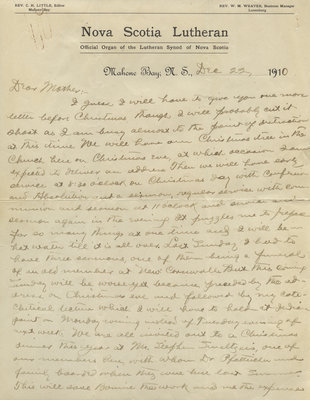 REV. C. H. LITTLE, Editor
REV. W. M. WEAVER, Business Manager
Lunenburg
Nova Scotia Lutheran
Official Organ of the Lutheran Synod of Nova Scotia
Mahone Bay, N. S., Dec 22, 1910
Dear Mother:-
I guess I will have to give you one more
letter before Christmas though I will probably cut it
short as I am busy almost to the point of distraction
at this time. We will have our Christmas tree in the
Church here on Christmas eve, at which occasion I am
expected to deliver an address. Then we will have early
service at o'clock on Christmas Day with Confession
and Absolution and a sermon, regular service with com-
munion and sermon at o'clock and service and
sermon again in the evening. It puzzles me to prepare
for so many things at one time and I will be in
hot water till it is all over. Last Sunday I had to
have three sermons, one of them being a funeral
of an old member at New Cornwall. But this coming
Sunday will be worse yet because preceded by the ad-
dress on Christmas eve and followed by my cate-
chetical lecture which I will have to hold at
point on Monday evening instead of Tuesday evening of
next week. We are all invited out to a Christmas
dinner this year at Mr. one of
our members here, with whom Dr. and
family boarded when they were here last Summer.
This will save Bonnie this work and me the expense